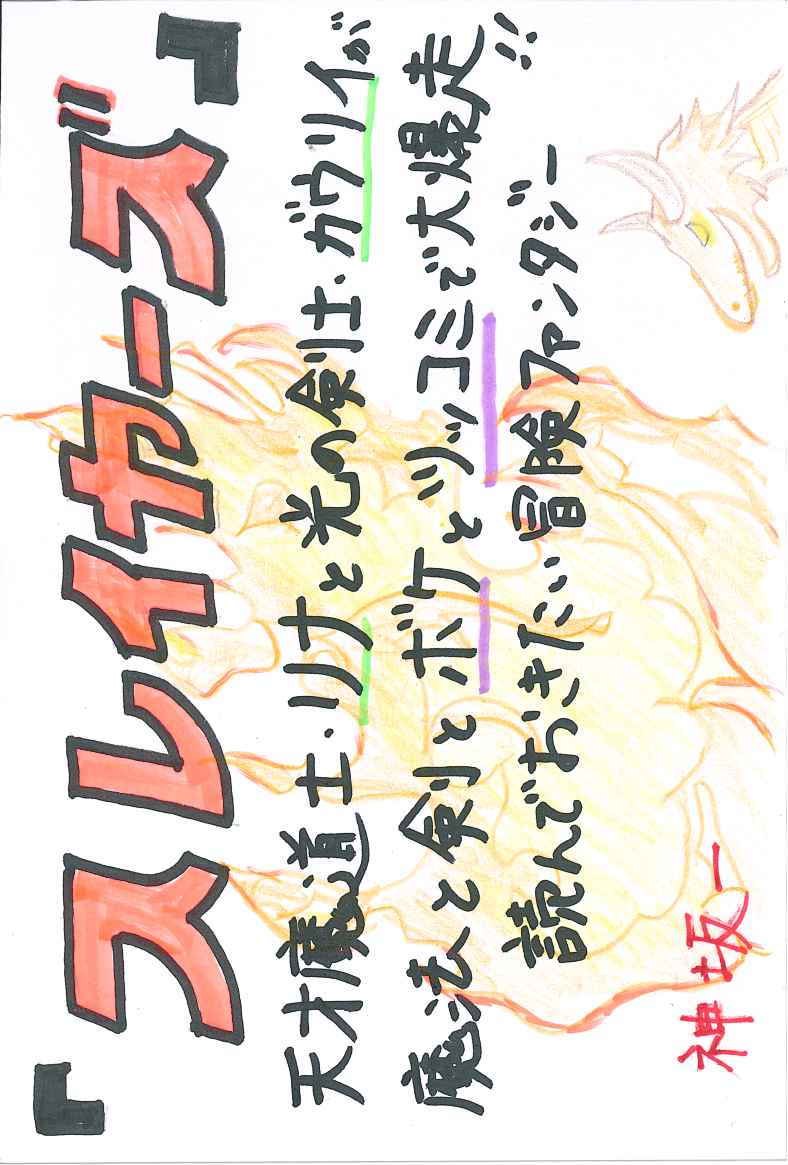 『スレイヤーズ』
天才魔道士・リナと光の剣士・ガウリイが
魔法と剣とボケとツッコミで大爆走!!
読んでおきたい冒険ファンタジー
神坂一